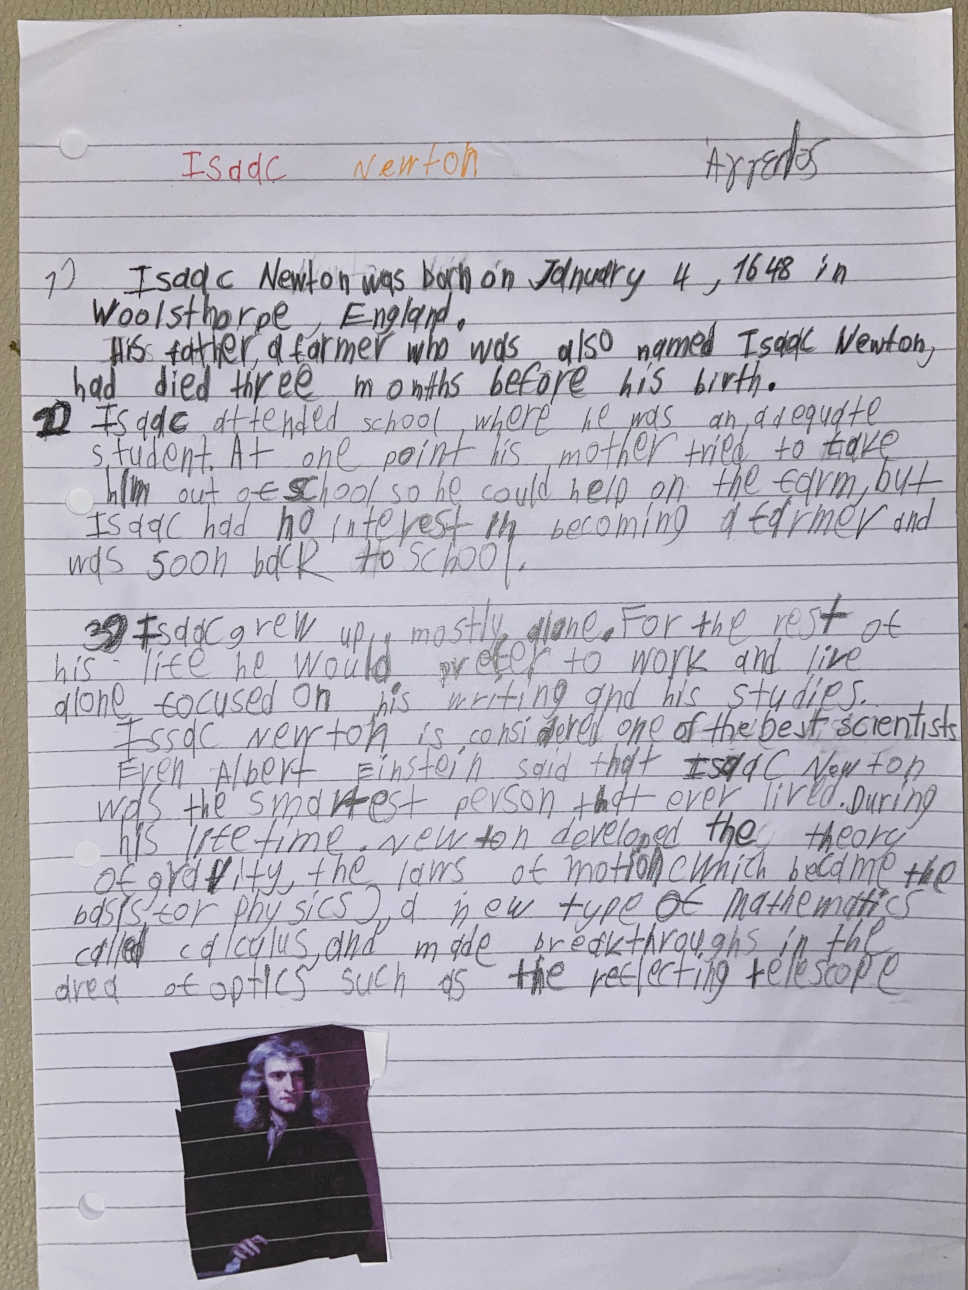 Isaac Newton
1) Isaac Newton was born on January 4, 1648 in
Woolsthorpe, England.
His father, a farmer who was also named Isaac Newton,
had died three months before his birth.
2) Isaac attended school, where he was an adequate
student. At one point his mother tried to take
him out of school so he could help on the farm, but
Isaac had no interest in becoming a farmer and
was soon back to school.
3) Isaac grew up, mostly alone. For the rest of
his life he would prefer to work and live
alone focused on his writing and his studies.
Issac Newton is considered one of the best scientists
Even Albert Einstein said that Isaac Newton
was the smartest person that ever lived. During
his lifetime. Newton developed the theory
of gravity, the laws of motion (which became the
basis for physics), a new type of mathematics
called calculus, and made breakthroughs in the
area of optics such as the reflecting telescope